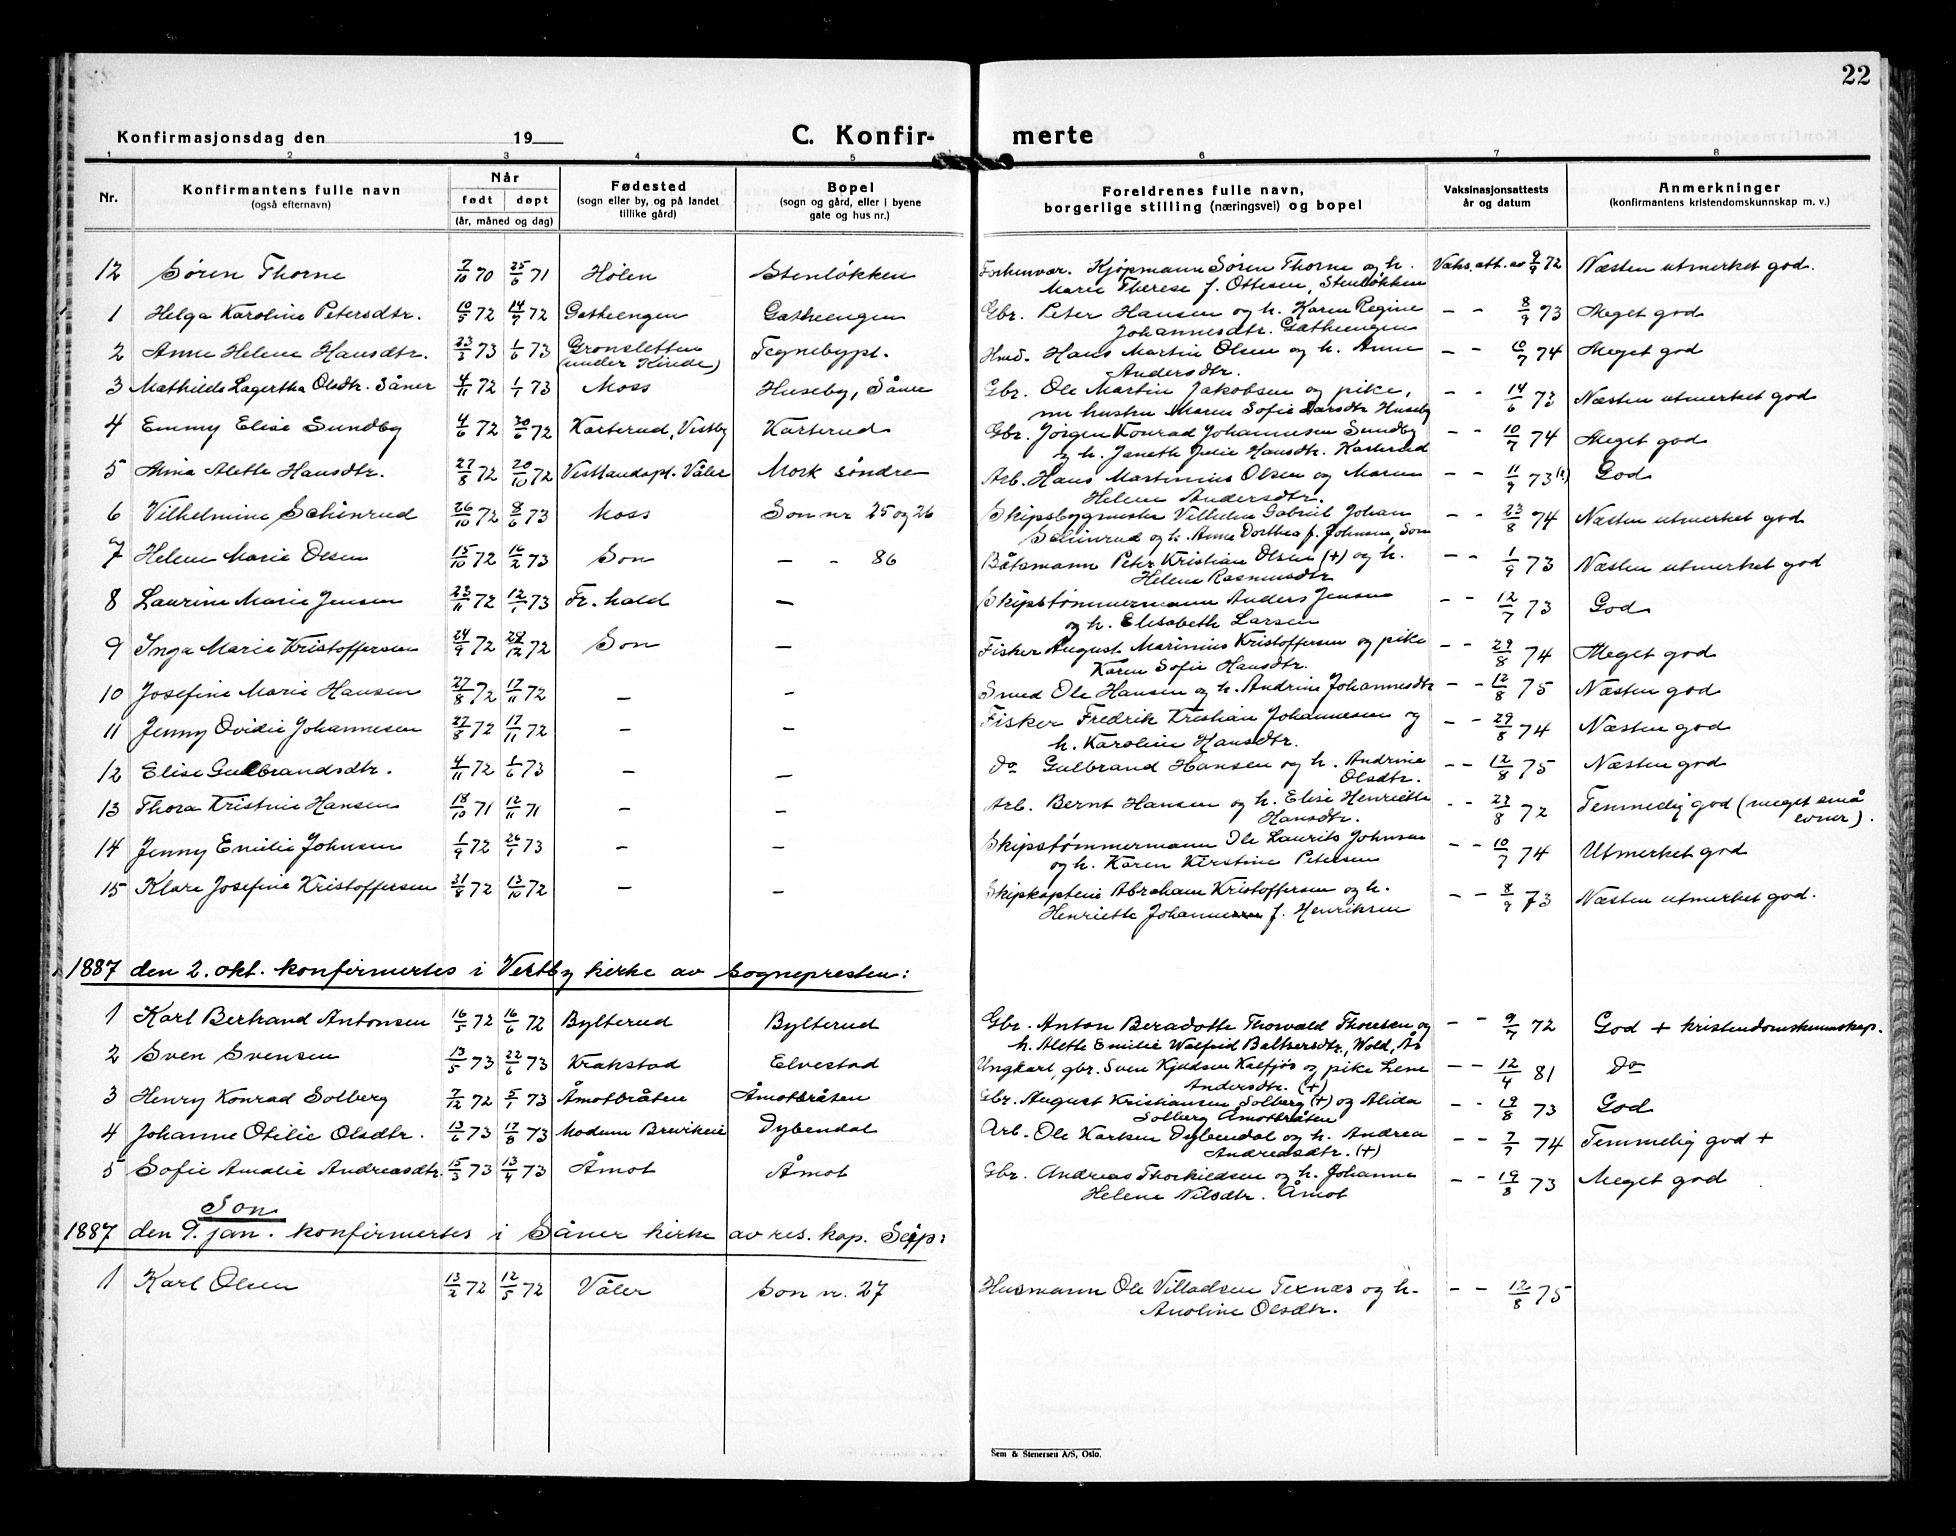 22
Konfirmasjonsdag den 19
C. Konfir- merte
1 2 3 4 5 6 7 8
Nr. Konfirmantens fulle navn (også efternavn) Når født døpt (år, måned og dag) Fødested (sogn eller by, og på landet tillike gård) Bopel (sogn og gård, eller i byene gate og hus nr.) Foreldrenes fulle navn, borgerlige stilling (næringsvei) og bopel Vaksinasjonsattests år og datum Anmerkninger (konfirmantens kristendomskunnskap m. v.)
12 Søren Thorne 7/10 70 25/6 71 Hølen Stenløkken Forhenvær. Kjøpmann Søren Thorne og h. Vaks. att. av 9/9 72 Næsten utmerket god.
Marie Therese f. Ottesen, Stenløkken
1 Helga Karoline Petersdtr. 10/5 72 14/7 72 Gatheengen Gatheengen Gbr. Peter Hansen og h. Karen Regine - - 8/9 73 Meget god
Johannesdtr. Gatheengen
2 Anne Helene Hansdtr. 23/3 73 1/6 73 Gronsletten (under Kinde) Tegnebypl. Hmd. Hans Martin Olsen og h. Anne - - 10/7 74 Meget god
Andersdtr.
3 Mathilde Lagertha Olsdtr. Såner 4/11 72 1/1 73 Moss Huseby, Såner Gbr. Ole Martin Jakobsen og pike, - - 14/6 73 Næsten utmerket god
nu hustru Maren Sofie Larsdtr Huseby
4 Emmy Elise Sundby 4/6 72 30/6 72 Karterud, Vestby Karterud Gbr. Jørgen Konrad Johannesen Sundby - - 10/7 74 Meget god
og h. Janeth Julie Hansdtr. Karterud
5 Mina Alette Hansdtr. 27/8 72 20/10 72 Vestlandspl. Våler Mork søndre Arb. Hans Martinius Olsen og Maren - - 11/9 73 God
Helene Andersdtr.
6 Vilhelmine Schinrud 26/10 72 8/6 73 Moss Son nr 25 og 26 Skipsbygmester Vilhelm Gabriel Johan - - 23/8 74 Næsten utmerket god
Schinrud og h. Anne Dorthea f. Johnsen, Son
7 Helene Marie Olsen 15/10 72 16/2 73 Son - - 86 Båtsmann Peter Kristian Olsen (+) og h. - - 1/9 73 Næsten utmerket god
Helene Rasmusdtr
8 Laurine Marie Jensen 23/11 72 12/1 73 Fr. hald - Skipstømmermann Anders Jensen - - 12/7 73 God
og h. Elisabeth Larsen
9 Inga Marie Kristoffersen 24/9 72 29/12 72 Son - Fisker August Marinius Kristoffersen og pike - - 29/8 74 Meget god
Karen Sofie Hansdtr.
10 Josefine Marie Hansen 27/8 72 17/11 72 - - Smed Ole Hansen og h. Andrine Johannesdtr - - 12/8 75 Næsten god
11 Jenny Ovidie Johannesen 27/8 72 17/11 72 - - Fisker Fredrik Kristian Johannesen og - - 29/8 74 Næsten god
h. Karoline Hansdtr.
12 Elise Gulbrandsdtr. 4/11 72 1/6 73 - - do Gulbrand Hansen og h. Andrine - - 12/8 75 Næsten god
Olsdtr.
13 Thora Kristine Hansen 18/10 71 12/11 71 - - Arb. Bernt Hansen og h. Elise Henriette - - 27/8 72 Temmelig god (meget små evner).
Hansdtr.
14 Jenny Emilie Johnsen 1/9 72 26/1 73 - - Skipstømmermann Ole Laurits Johnsen - - 10/7 74 Utmerket god
og h. Karen Kirstine Petersen
15 Klara Josefine Kristoffersen 31/8 72 13/10 72 - - Skipskaptein Abraham Kristoffersen og h. - - 8/9 73 Næsten utmerket god.
Henriette Johanne f. Henriksen
1887 den 2. okt. konfirmertes i Vestby kirke av sognepresten:
1 Karl Bertrand Antonsen 16/5 72 16/6 72 Bylterud Bylterud Gbr. Anton Beradotte Thorvald Thoresen og - - 9/7 72 God + kristendomskunnskap.
h. Alette Emilie Walfrid Baltsersdtr., Wold, Ås
2 Sven Svensen 13/5 73 22/6 73 Krakstad Elvestad Ungkarl, gbr. Sven Kjeldsen Kalfjøs og pike Lene - - 12/4 81 do
Andersdtr. (+)
3 Henry Konrad Solberg 7/12 72 5/1 73 Åmotbråten Åmotbråten Gbr. August Kristiansen Solberg (+) og Alida - - 19/8 73 God
Solberg Åmotbråten
4 Johanne Otilie Olsdtr. 13/6 73 17/8 73 Modum Brevikeie Dybendal Arb. Ole Karlsen Dybendal og h. Andrea - - 7/7 74 Temmelig god +
Andreasdtr. (+)
5 Sofie Amalie Andreasdtr. 15/3 73 13/4 73 Åmot Åmot Gbr. Andreas Thorkildsen og h. Johanne - - 19/8 73 Meget god
Helene Nilsdtr. Åmot
Son
1887 den 9. jan. konfirmertes i Såner kirke av res. kap. Seip:
1 Karl Olsen 13/2 72 12/5 72 Våler Son nr. 27 Husmann Ole Villadsen Texnæs og h. - - 12/8 75
Anoline Olsdtr.
Sem & Stenersen A/S, Oslo.